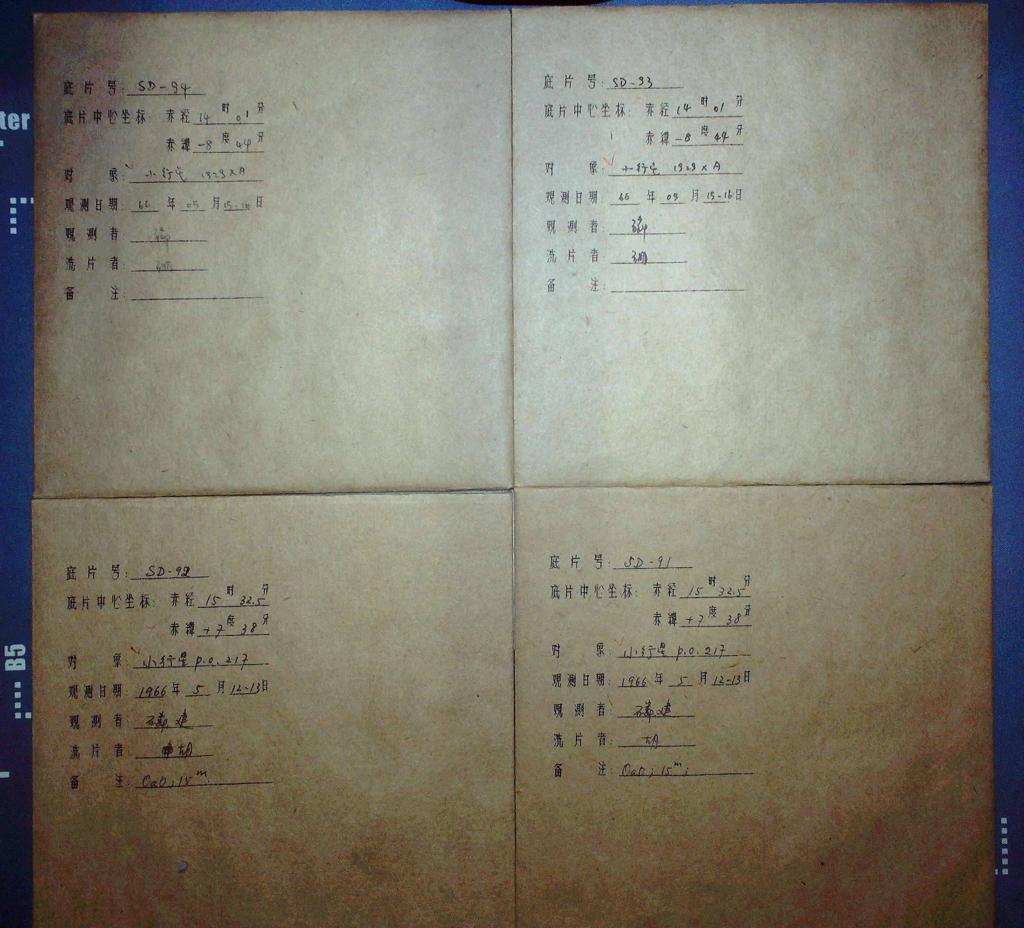 底片号: SD-94
底片中心坐标: 赤径 14时 01分
赤纬 -8度 44分
对象: 小行星
观测日期: 66年 05月 15-16日
观测者:
洗片者:
备注:
底片号: SD-93
底片中心坐标: 赤径 14时 01分
赤纬 -8度 44分
对象: 小行星
观测日期: 66年 05月 15-16日
观测者:
洗片者:
备注:
底片号: SD-92
底片中心坐标: 赤径 15时 32.5分
赤纬 +7度 38分
对象: 小行星 P.O.217
观测日期: 1966年 5月 12-13日
观测者:
洗片者: 胡
备注: OaO; 15m;
底片号: SD-91
底片中心坐标: 赤径 15时 32.5分
赤纬 +7度 38分
对象: 小行星 P.O.217
观测日期: 1966年 5月 12-13日
观测者:
洗片者: 胡
备注: OaO; 15m;
ter
B5